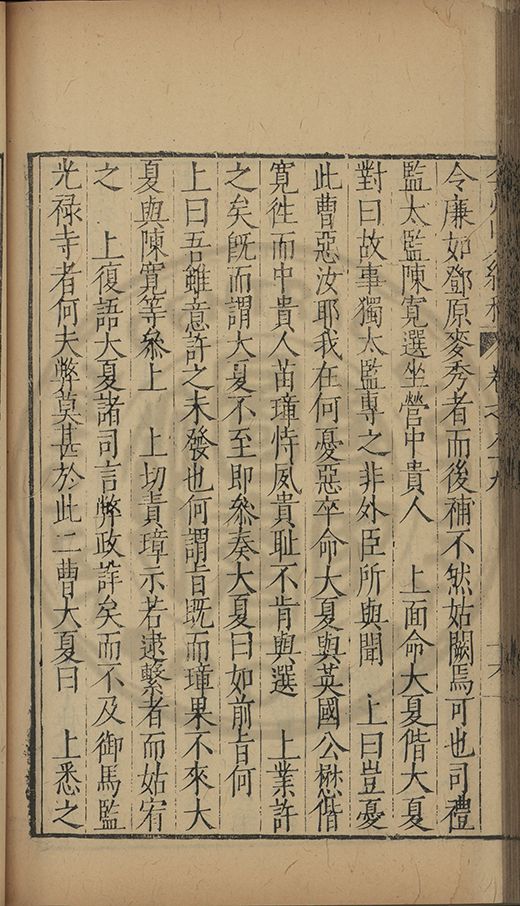 令廉如鄧原麥秀者而後補不然姑闕焉可也司禮
監太監陳寬選坐營中貴人　上面命大夏偕大夏
對曰故事獨太監專之非外臣所與聞　上曰豈憂
此曹惡汝耶我在何憂惡卒命大夏與英國公懋偕
寬徃而中貴人苗璋恃夙貴耻不肯與選　上業許
之矣旣而謂大夏不至即叅奏大夏曰如前旨何
上曰吾雖意許之未發也何謂旨既而璋果不來大
夏與陳寬等叅上　上切責璋示若逮繫者而姑宥
之　上復語大夏諸司言弊政詳矣而不及御馬監
光禄寺者何夫弊莫甚於此二曹大夏曰　上悉之